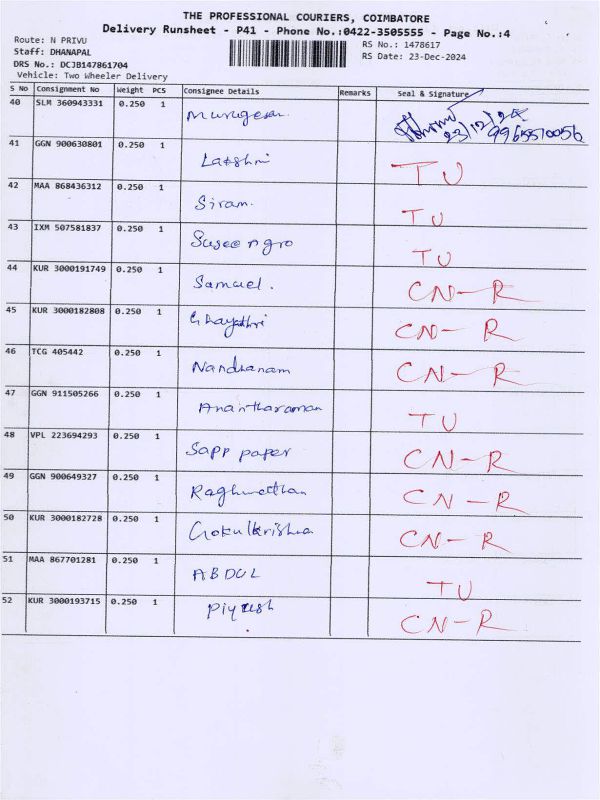 THE PROFESSIONAL COURIERS, COIMBATORE
Delivery Runsheet - P41 - Phone No.:0422-3505555 - Page No.:4
Route: N PRIVU
RS No.: 1478617
Staff: DHANAPAL
RS Date: 23-Dec-2024
DRS No.: DCJB147861704
Vehicle: Two Wheeler Delivery
S No Consignment No Weight PCS Consignee Details Remarks Seal & Signature
40 SLM 360943331 0.250 1 Murugesan 23/12/24
41 GGN 900630801 0.250 1 Lakshmi TU
42 MAA 868436312 0.250 1 Siram. TU
43 IXM 507581837 0.250 1 TU
44 KUR 3000191749 0.250 1 Samuel. CN-R
45 KUR 3000182808 0.250 1 Ghayathri CN-R
46 TCG 405442 0.250 1 Nandhanam CN-R
47 GGN 911505266 0.250 1 Anantharaman TU
48 VPL 223694293 0.250 1 Sapp paper CN-R
49 GGN 900649327 0.250 1 Raghunathan CN-R
50 KUR 3000182728 0.250 1 Gokulkrishna CN-R
51 MAA 867701281 0.250 1 ABDUL TU
52 KUR 3000193715 0.250 1 Piyush CN-R